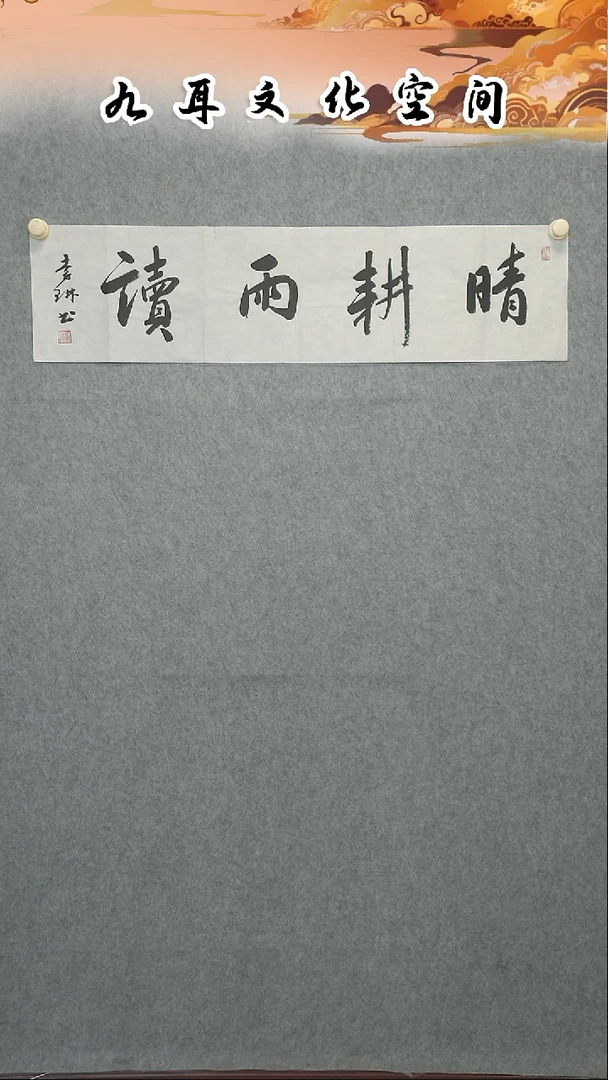 九耳文化空间
晴耕雨讀
書